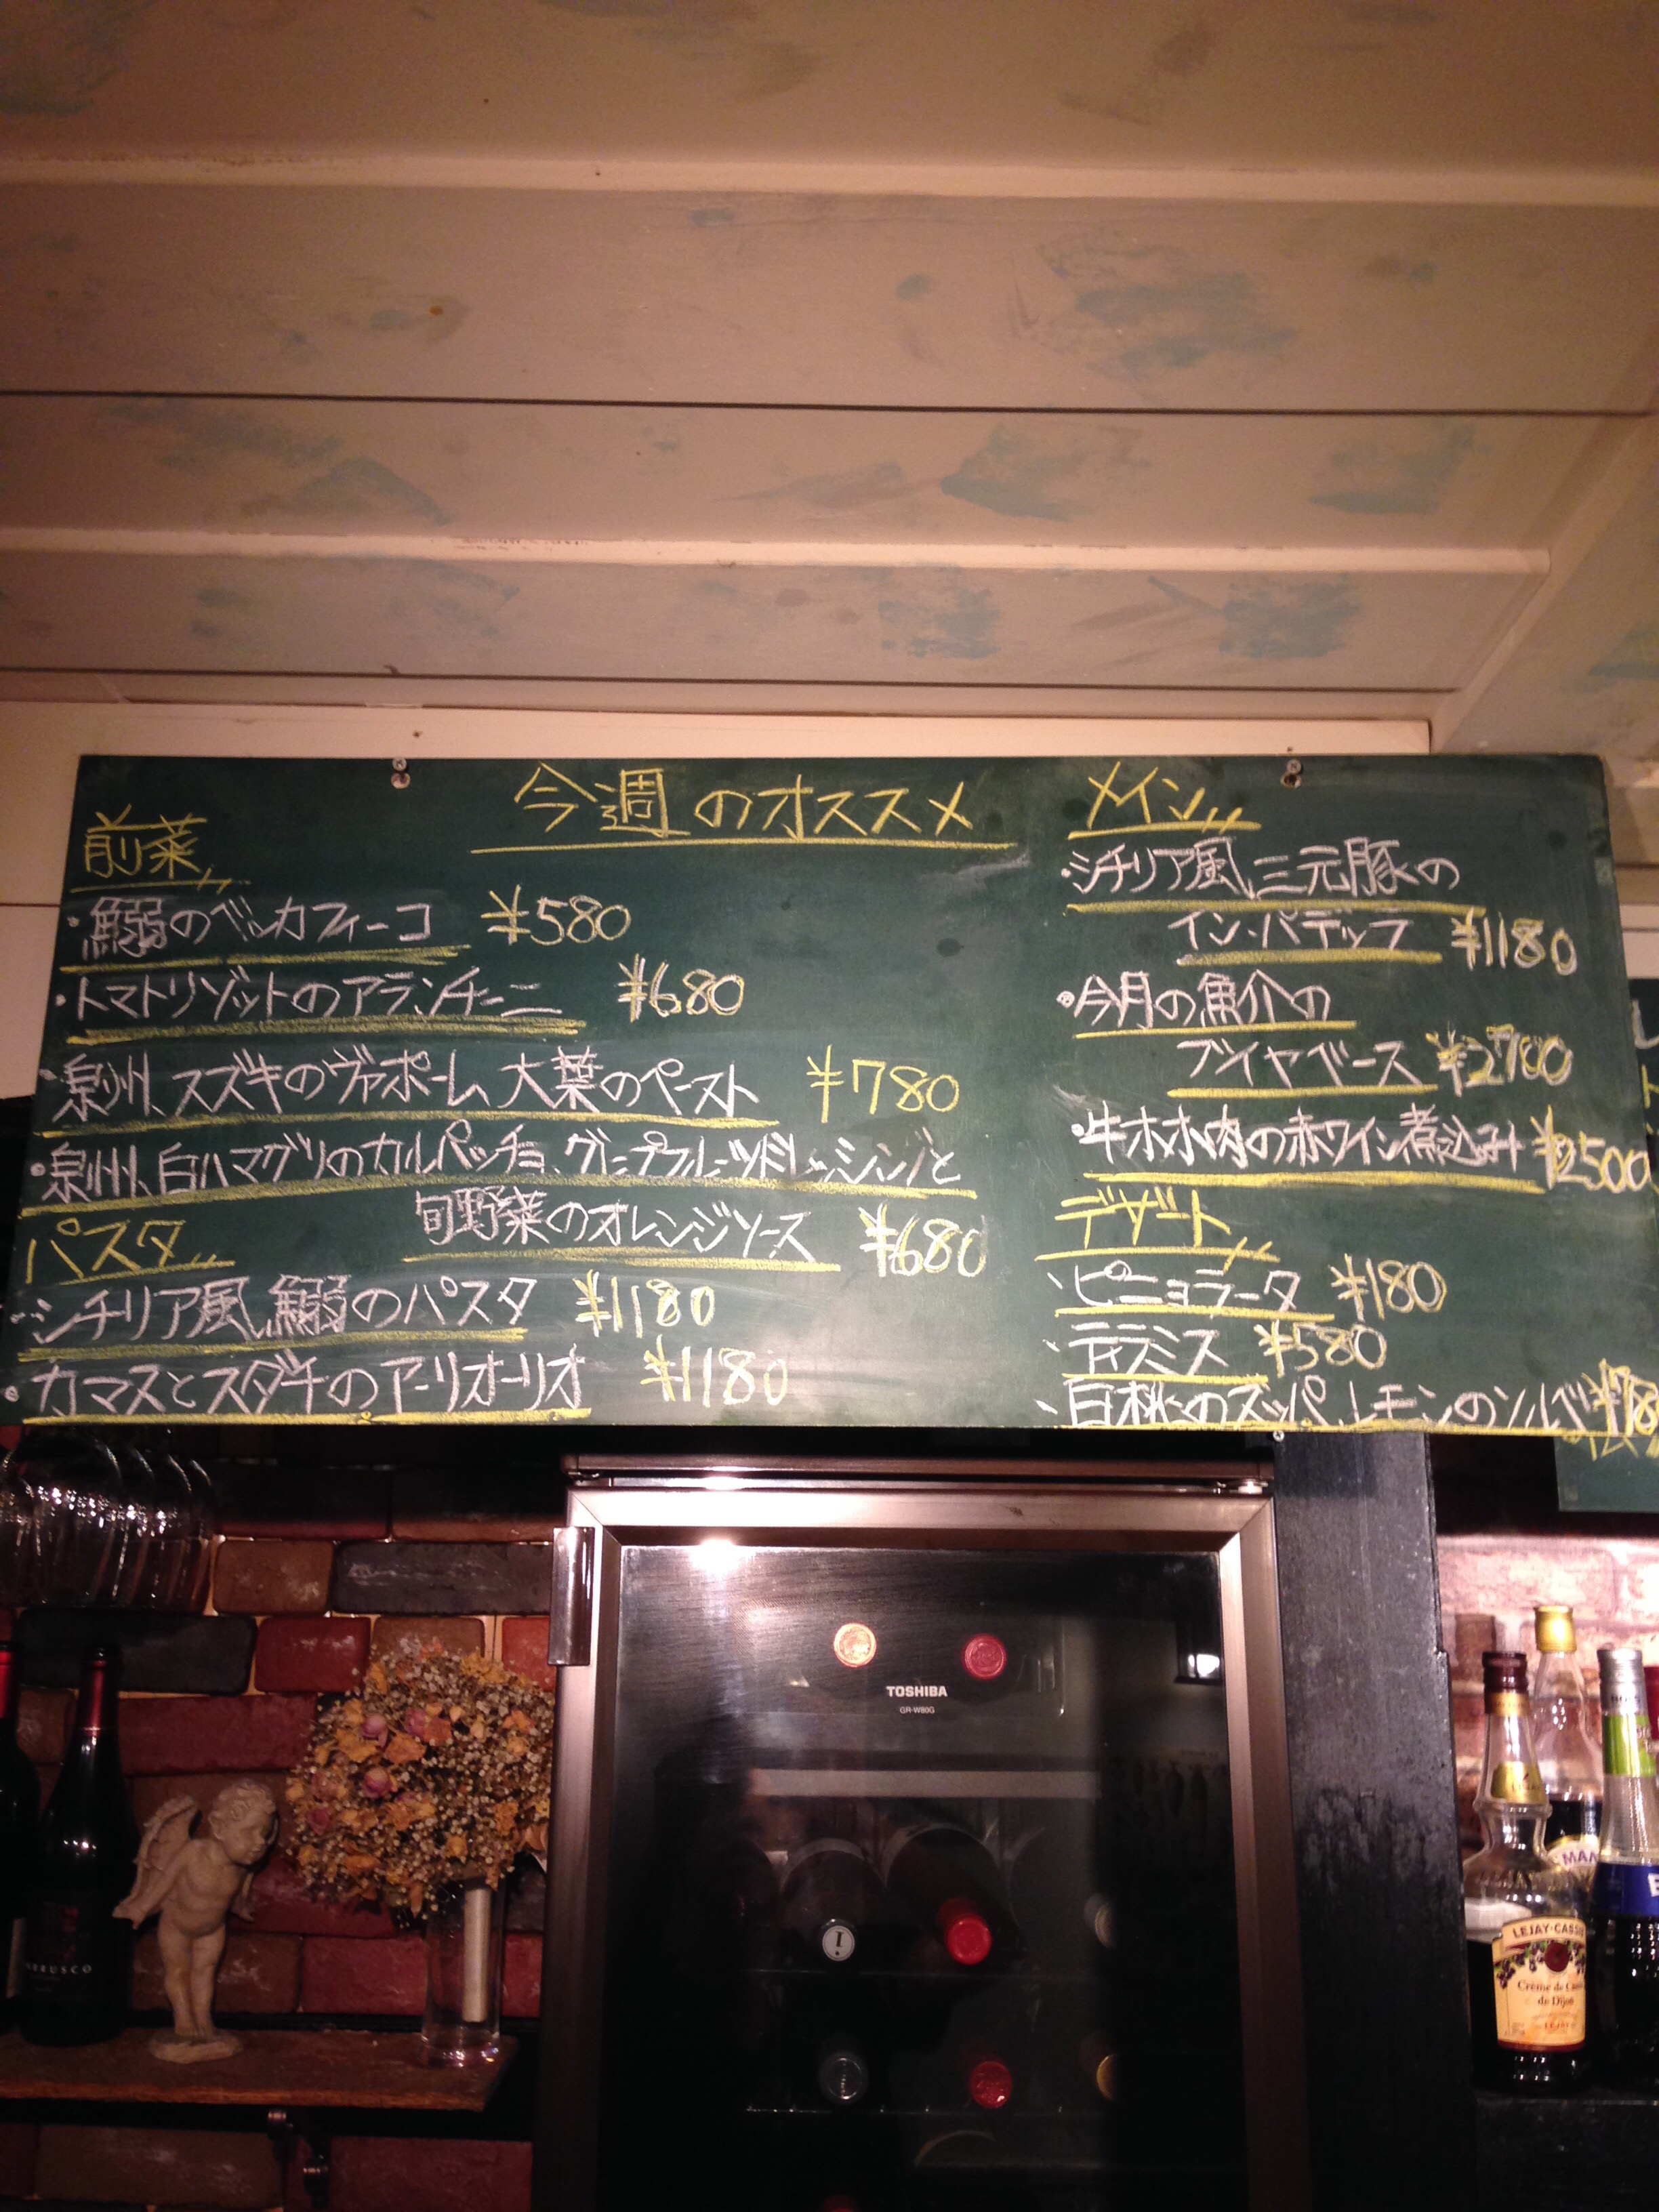 今週のオススメ
前菜
・鰯のベッカフィーコ ¥580
・トマトリゾットのアランチーニ ¥680
・泉州、スズキのヴァポーレ、大葉のペースト ¥780
・泉州、白ハマグリのカルパッチョ、グレープフルーツドレッシングと
旬野菜のオレンジソース ¥680
パスタ
・シチリア風、鰯のパスタ ¥1180
・カマスとスダチのアーリオオーリオ ¥1180
メイン
・シチリア風、三元豚の
イン・パデッラ ¥1180
・今月の魚介の
ブイヤベース ¥2780
・牛ホホ肉の赤ワイン煮込み ¥2500
デザート
・ピニョラータ ¥180
・ティラミス ¥580
・白桃のズッパ、レモンのソルベ
TOSHIBA
GR-W80G
LEJAY-CASSIS
Crème de Cassis
de Dijon